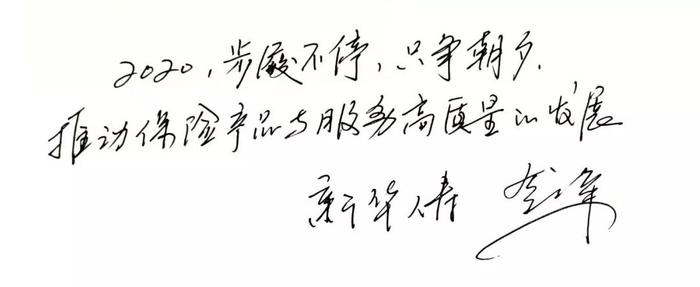 2020,步履不停,只争朝夕,
推动保险产品与服务高质量的发展
新华人寿